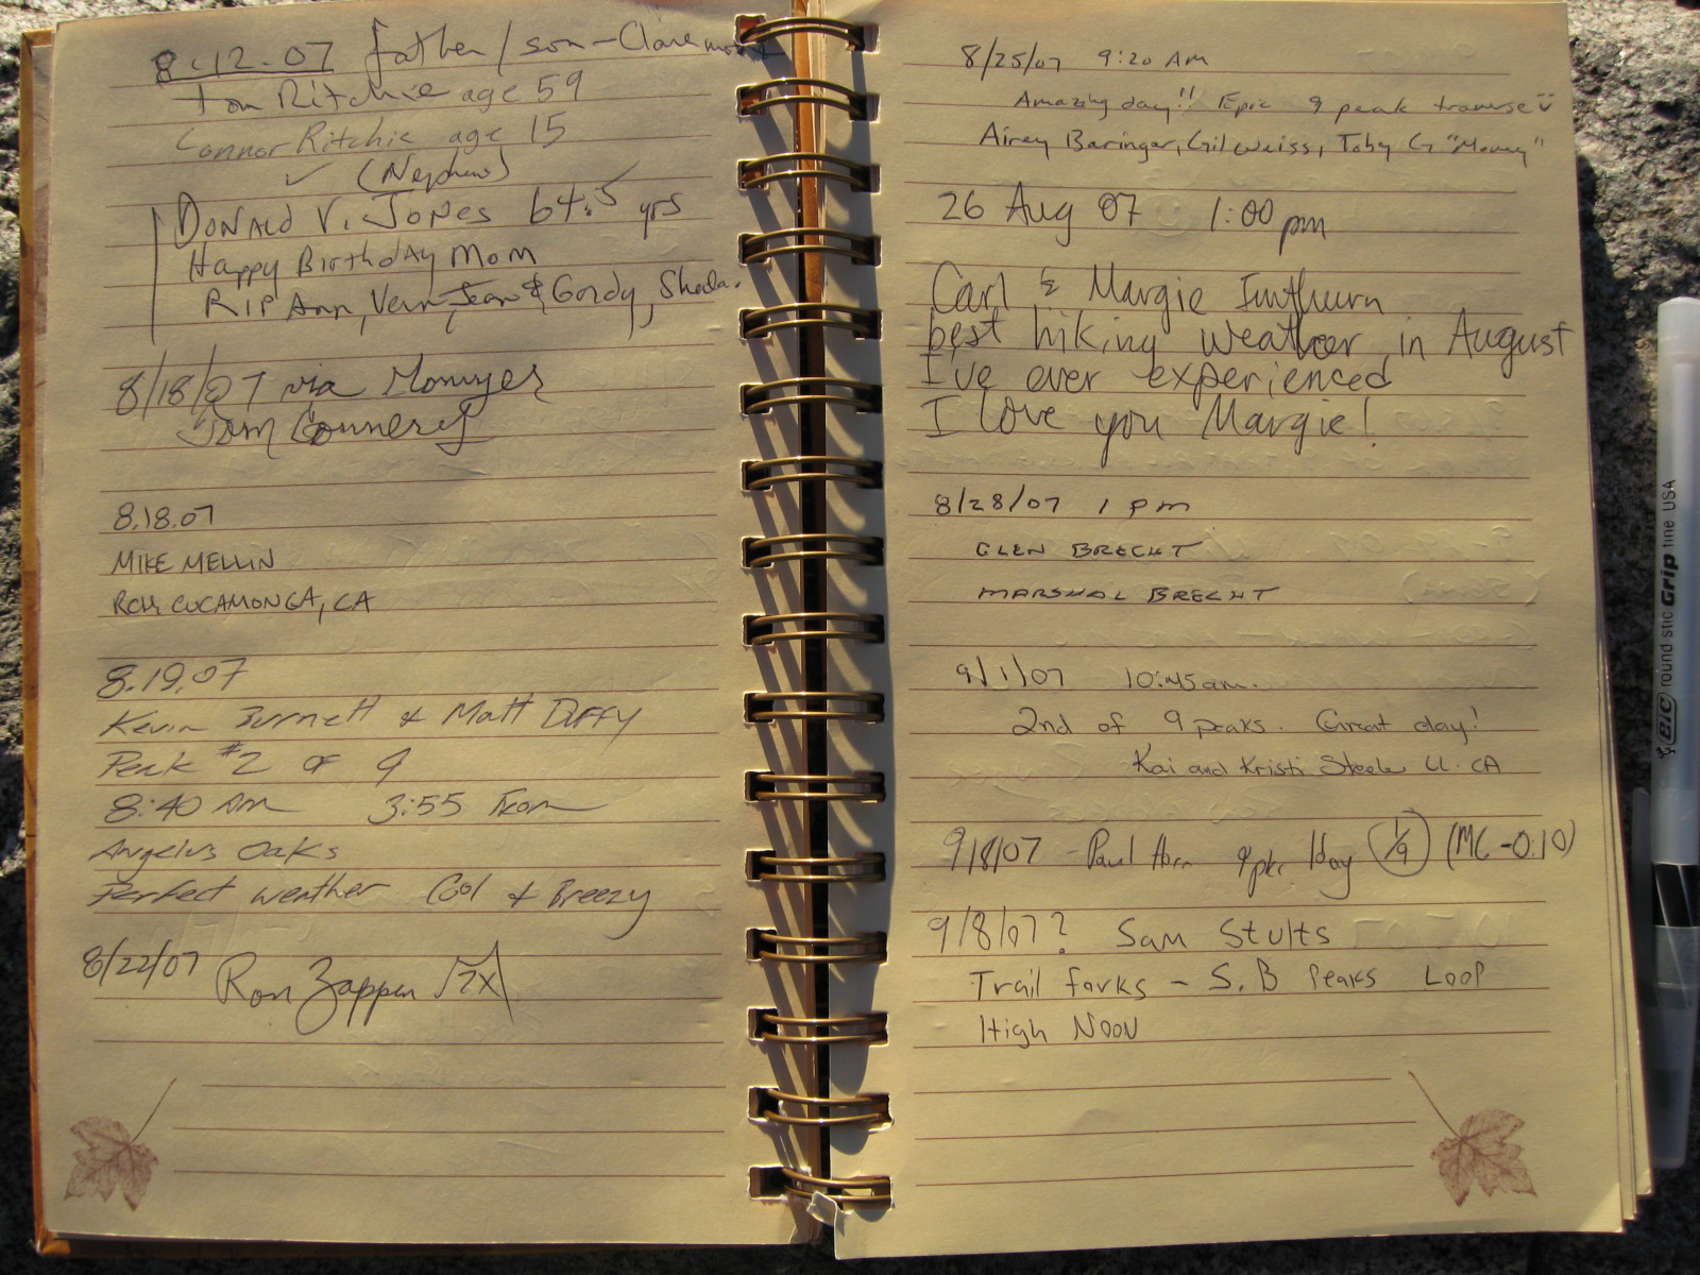 8-12-07 father/son-Claremont
Tom Ritchie age 59
Connor Ritchie age 15
(Nephew)
DONALD V. JONES 64.5 yrs
Happy Birthday Mom
RIP Ann, Vern, Jean & Gordy, Sheila.
8/18/07 via Momyer
Tom Connery
8.18.07
MIKE MELLIN
RCH. CUCAMONGA, CA
8.19.07
Kevin Burnett & Matt Duffy
Peak #2 of 9
8:40 Am 3:55 From
Angelus Oaks
Perfect weather Cool & Breezy
8/22/07 Ron Zappen
8/25/07 9:20 AM
Amazing day!! Epic 9 peak traverse
Airey Baringer, Gil Weiss, Toby G
26 Aug 07 1:00 pm
Carl & Margie Imthurn
best hiking weather in August
I've ever experienced
I love you Margie!
8/28/07 1 pm
GLEN BRECHT
MARSHAL BRECHT
9/1/07 10:45am.
2nd of 9 peaks. Great day!
Kai and Kristi Steele U. CA
9/8/07 Paul Horn 9pk 1day (1/9) (MC-0.10)
9/8/07? Sam Stults
Trail forks - S.B Peaks Loop
High Noon
BIC round stic Grip fine USA